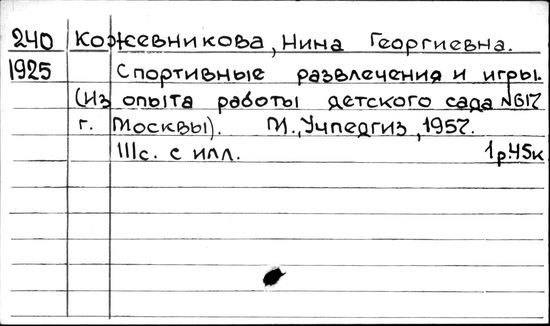 240 Кожевникова, Нина Георгиевна.
1925 Спортивные развлечения и игры.
(Из опыта работы детского сада №617
г. Москвы). М., Учпедгиз, 1957.
111с. с илл. 1р.45к